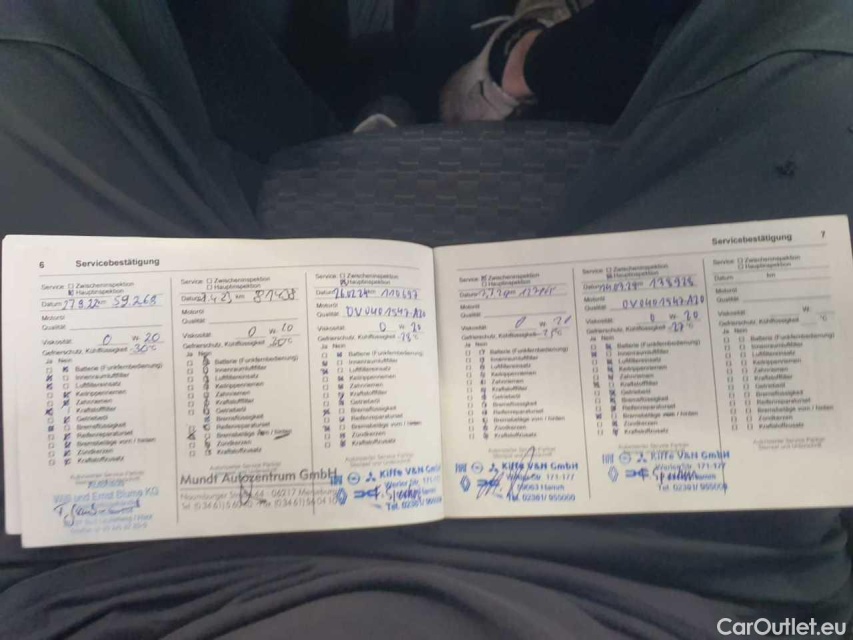 6 Servicebestätigung
Service: Zwischeninspektion
Hauptinspektion
Datum 27.9.22 km 59.268
Motoröl
Qualität
Viskosität 0 W 20
Gefrierschutz, Kühlflüssigkeit -30°C
Ja Nein
Batterie (Funkfernbedienung)
Innenraumfilter
Luftfiltereinsatz
Keilrippenriemen
Zahnriemen
Kraftstofffilter
Getriebeöl
Bremsflüssigkeit
Reifenreparaturset
Bremsbeläge vorn / hinten
Zündkerzen
Kraftstoffzusatz
Autorisierter Service Partner
Willi und Ernst Blume KG
Service: Zwischeninspektion
Hauptinspektion
Datum km 81438
Motoröl
Qualität
Viskosität 0 W 20
Gefrierschutz, Kühlflüssigkeit
Ja Nein
Batterie (Funkfernbedienung)
Innenraumfilter
Luftfiltereinsatz
Keilrippenriemen
Zahnriemen
Kraftstofffilter
Getriebeöl
Bremsflüssigkeit
Reifenreparaturset
Bremsbeläge vorn / hinten
Zündkerzen
Kraftstoffzusatz
Autorisierter Service Partner
Mundt Autozentrum GmbH
06217 Merseburg
Service: Zwischeninspektion
Hauptinspektion
Datum 26.02.24 km
Motoröl
Qualität OV0401547-A20
Viskosität 0 W 20
Gefrierschutz, Kühlflüssigkeit
Ja Nein
Batterie (Funkfernbedienung)
Innenraumfilter
Luftfiltereinsatz
Keilrippenriemen
Zahnriemen
Kraftstofffilter
Getriebeöl
Bremsflüssigkeit
Reifenreparaturset
Bremsbeläge vorn / hinten
Zündkerzen
Kraftstoffzusatz
Kiffe V&N GmbH
Tel. 02381/ 955000
Servicebestätigung 7
Service: Zwischeninspektion
Hauptinspektion
Datum km
Motoröl
Qualität
Viskosität 0 W 20
Gefrierschutz, Kühlflüssigkeit
Ja Nein
Batterie (Funkfernbedienung)
Innenraumfilter
Luftfiltereinsatz
Keilrippenriemen
Zahnriemen
Kraftstofffilter
Getriebeöl
Bremsflüssigkeit
Reifenreparaturset
Bremsbeläge vorn / hinten
Zündkerzen
Kraftstoffzusatz
Kiffe V&N GmbH
Werler Str. 171-177
59063 Hamm
Tel. 02381/ 955000
Service: Zwischeninspektion
Hauptinspektion
Datum km
Motoröl
Qualität OV0401547-A20
Viskosität 0 W 20
Gefrierschutz, Kühlflüssigkeit -27°C
Ja Nein
Batterie (Funkfernbedienung)
Innenraumfilter
Luftfiltereinsatz
Keilrippenriemen
Zahnriemen
Kraftstofffilter
Getriebeöl
Bremsflüssigkeit
Reifenreparaturset
Bremsbeläge vorn / hinten
Zündkerzen
Kraftstoffzusatz
Kiffe V&N GmbH
Werler Str. 171-177
Tel. 02381/ 955000
Service: Zwischeninspektion
Hauptinspektion
Datum km
Motoröl
Qualität
Viskosität W
Gefrierschutz, Kühlflüssigkeit °C
Ja Nein
Batterie (Funkfernbedienung)
Innenraumfilter
Luftfiltereinsatz
Keilrippenriemen
Zahnriemen
Kraftstofffilter
Getriebeöl
Bremsflüssigkeit
Reifenreparaturset
Bremsbeläge vorn / hinten
Zündkerzen
Kraftstoffzusatz
Autorisierter Service Partner
Stempel und Unterschrift
CarOutlet.eu